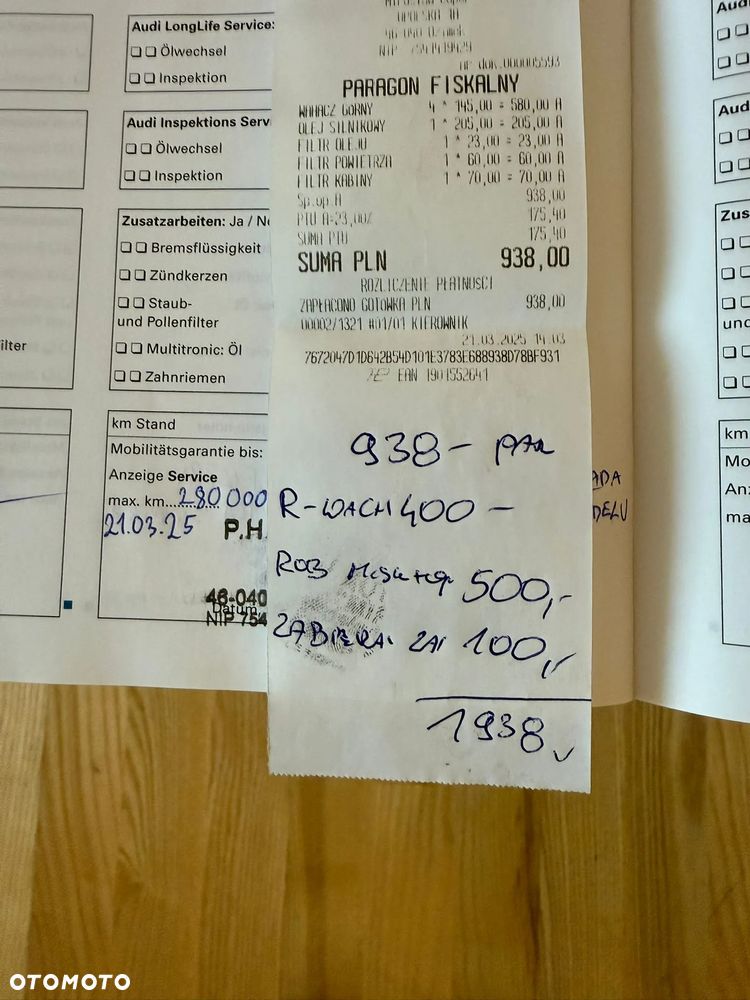 Audi LongLife Service:
Ölwechsel
Inspektion
Audi Inspektions Serv
Ölwechsel
Inspektion
Zusatzarbeiten: Ja / Ne
Bremsflüssigkeit
Zündkerzen
Staub-
und Pollenfilter
Multitronic: Öl
Zahnriemen
km Stand
Mobilitätsgarantie bis:
Anzeige Service
max. km 280 000
21.03.25 P.H.
46-040
Datum
NIP 754
ilter
OPOLSKA
46-040
NIP
nr dok.000005593
PARAGON FISKALNY
WAHACZ GÓRNY 4 * 145,00 = 580,00 A
OLEJ SILNIKOWY 1 * 205,00 = 205,00 A
FILTR OLEJU 1 * 23,00 = 23,00 A
FILTR POWIETRZA 1 * 60,00 = 60,00 A
FILTR KABINY 1 * 70,00 = 70,00 A
Sp.op.A 938,00
PTU A=23,00% 175,40
SUMA PTU 175,40
SUMA PLN 938,00
ROZLICZENIE PŁATNOŚCI
ZAPŁACONO GOTÓWKA PLN 938,00
00002/1321 #01/01 KIEROWNIK
21.03.2025 14:03
7672047D1D642B54D101E3783E688938D78BF931
EAN 1901552641
938-
R-WACH 400 -
ROB 500,-
ZA 100,-
1938
ADA
DELU
Audi
Audi
Zus
und
km
Mo
Anz
ma
OTOMOTO